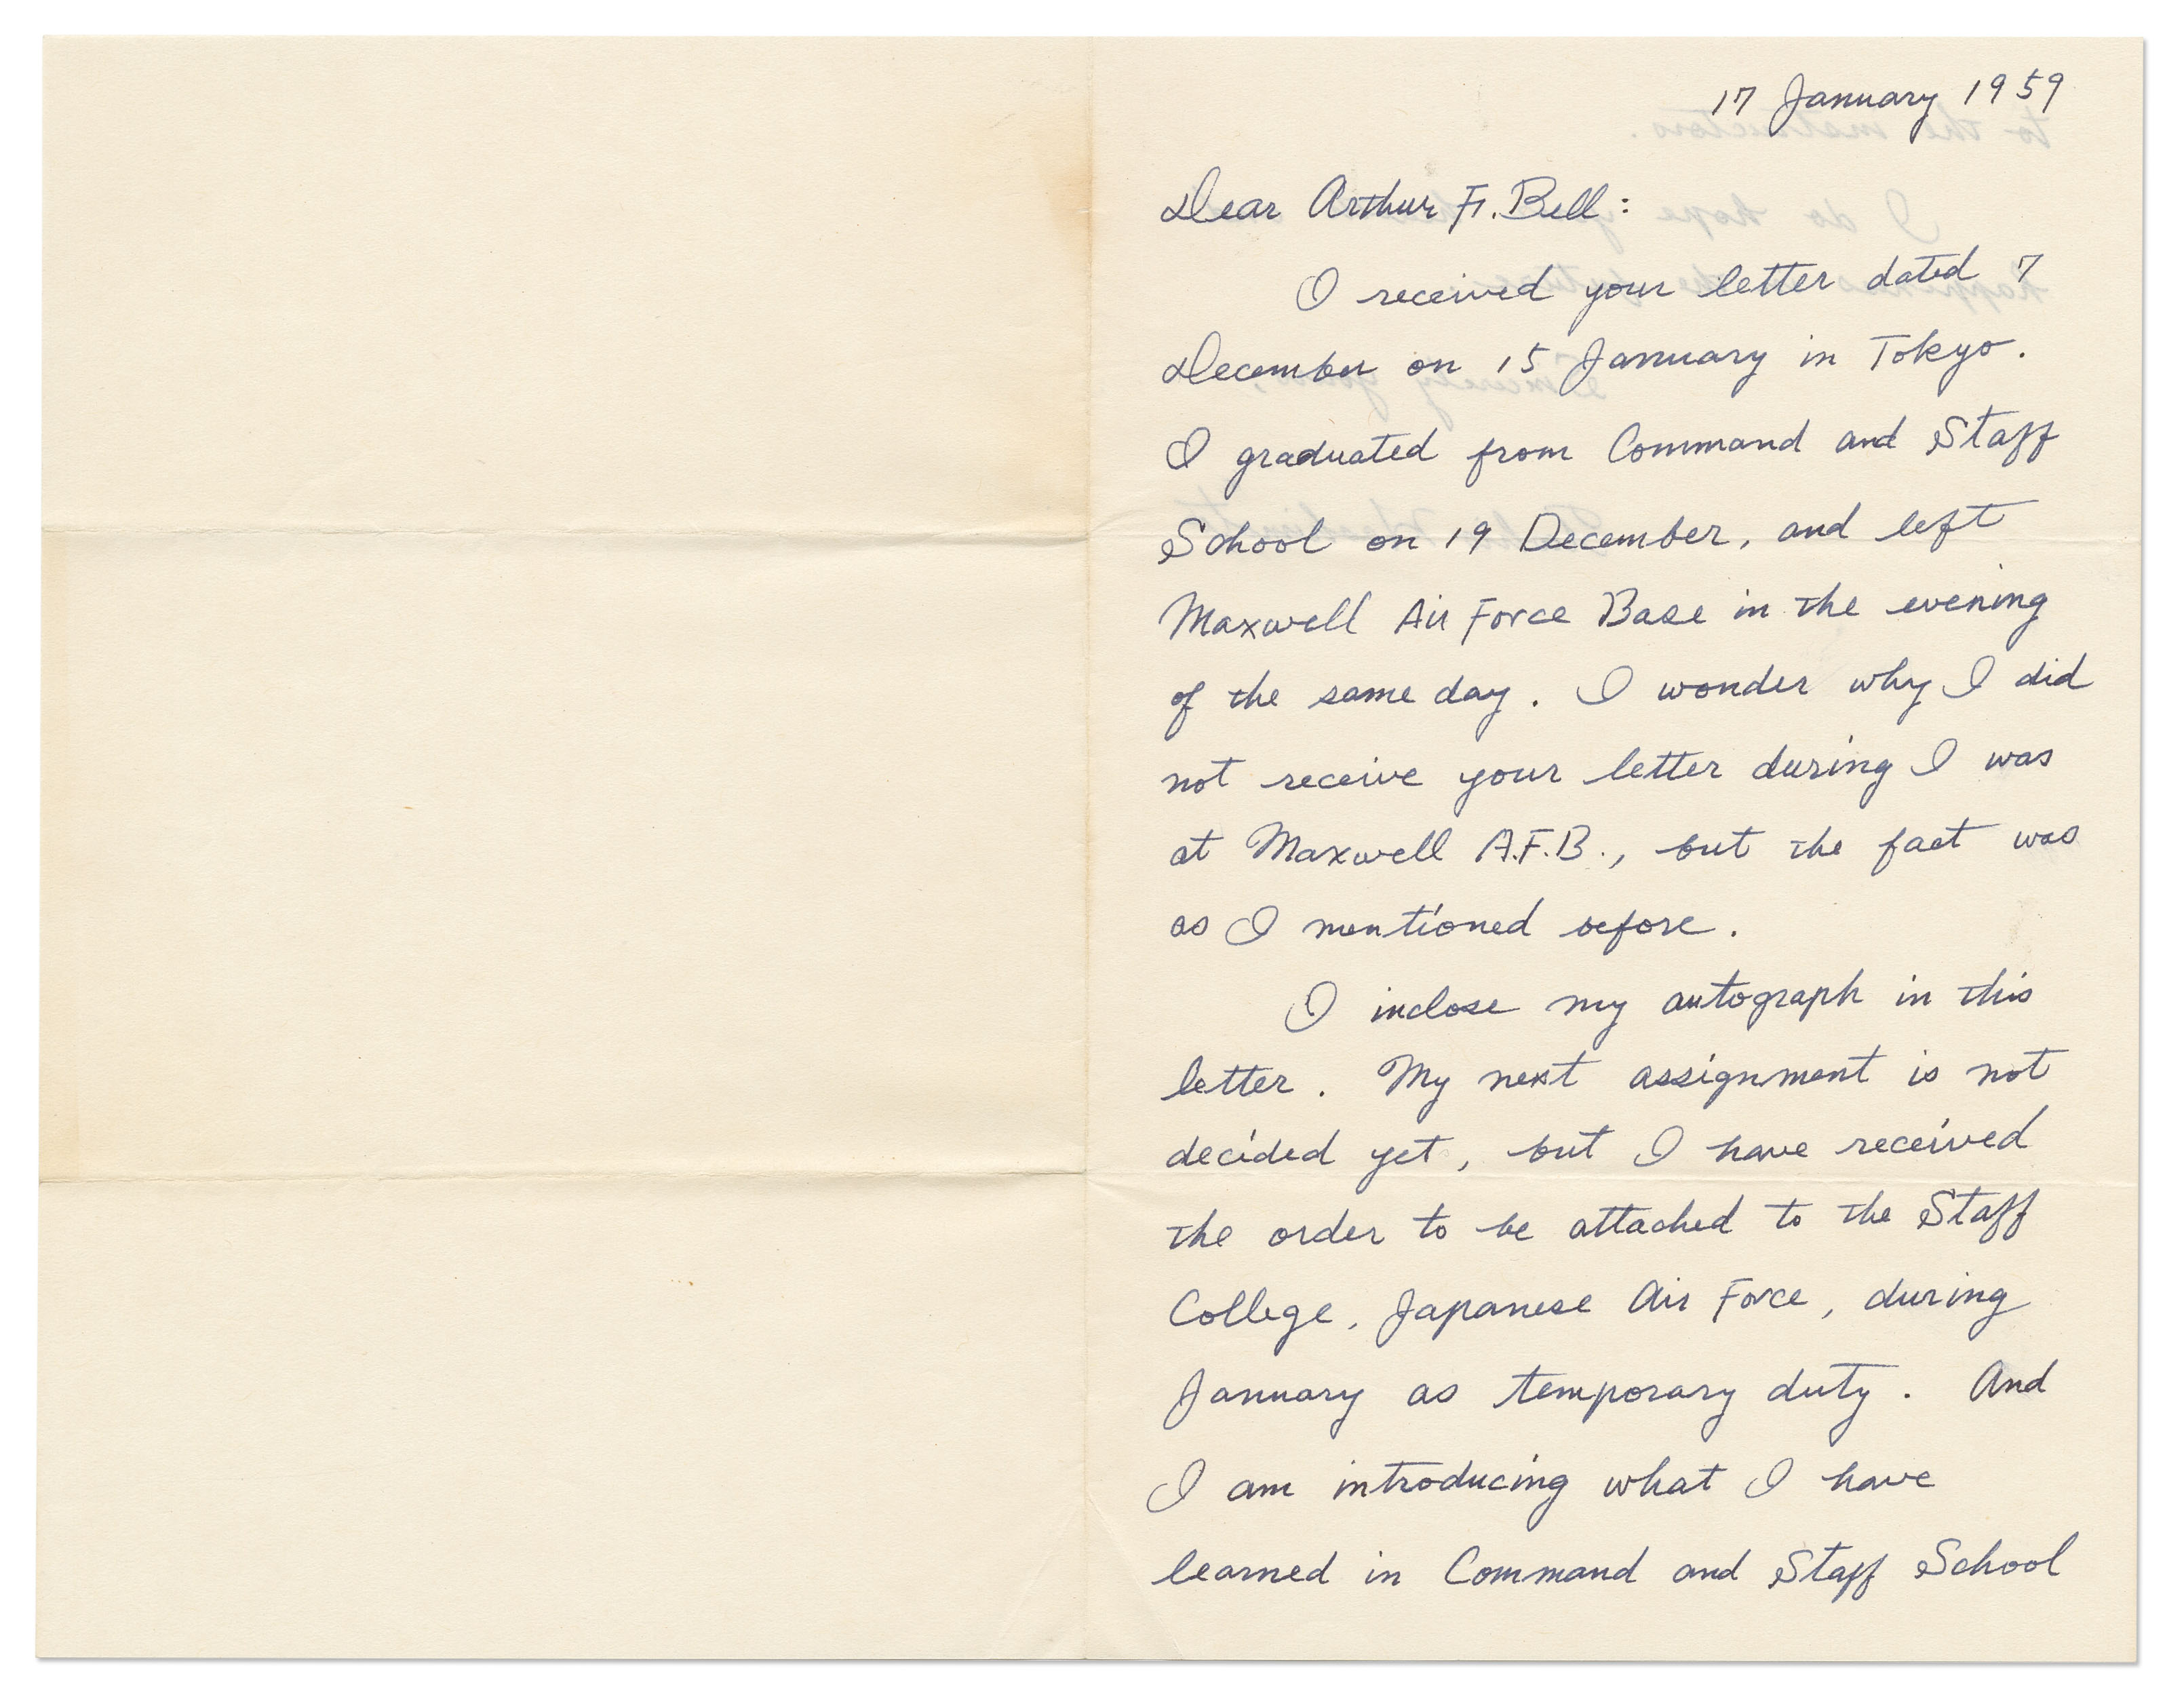 17 January 1959
Dear Arthur F. Bell:
I received your letter dated 7
December on 15 January in Tokyo.
I graduated from Command and Staff
School on 19 December, and left
Maxwell Air Force Base in the evening
of the same day. I wonder why I did
not receive your letter during I was
at Maxwell A.F.B., but the fact was
as I mentioned before.
I inclose my autograph in this
letter. My next assignment is not
decided yet, but I have received
the order to be attached to the Staff
College, Japanese Air Force, during
January as temporary duty. And
I am introducing what I have
learned in Command and Staff School
to the instructors.
I do hope
happiness
Sincerely yours,